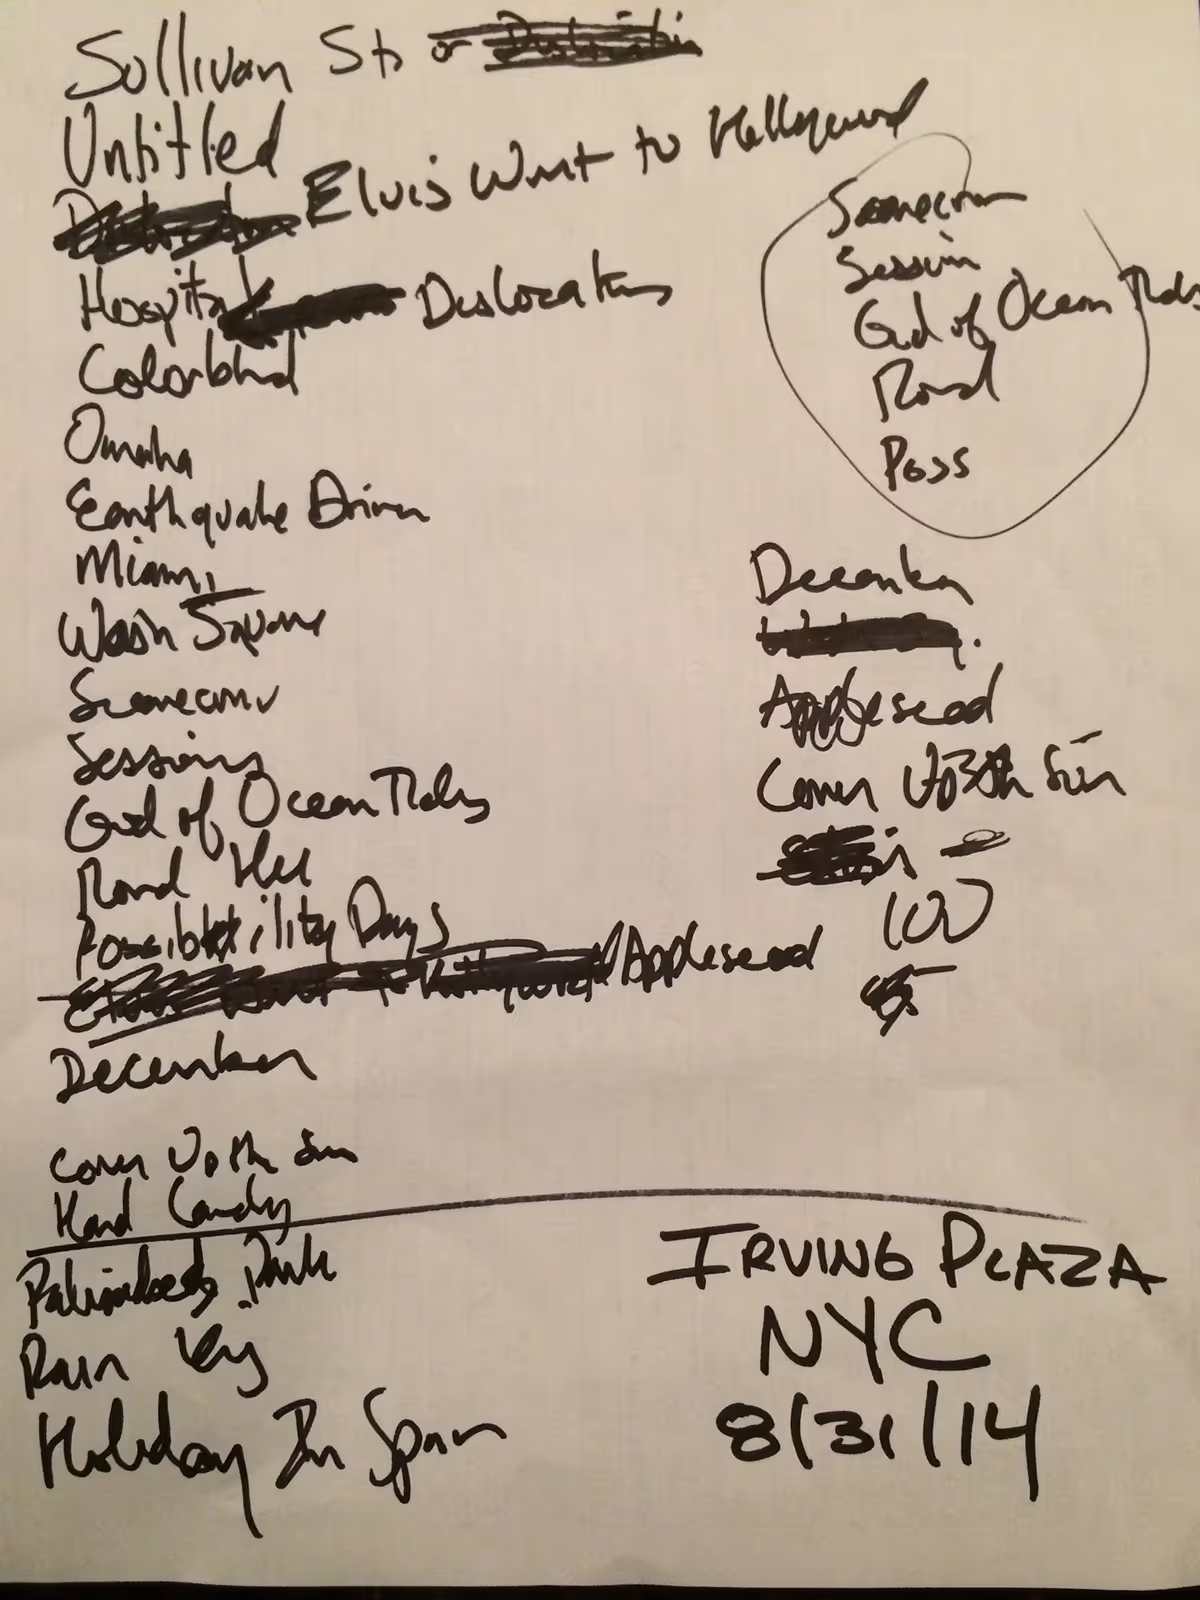 Sullivan St or
Untitled
Elvis Went to Hollywood
Hospital Dislocation
Colorblind
Omaha
Earthquake Driver
Miami
Wash Square
Scarecrow
Sessions
God of Ocean Tides
Round Here
Possibility Days
Appleseed
December
Cover Up the Sun
Hard Candy
Palisades Park
Rain King
Holiday In Spain
Scarecrow
Session
God of Ocean Tides
Round
Poss
December
Appleseed
Cover Up the Sun
100
IRVING PLAZA
NYC
8/31/14